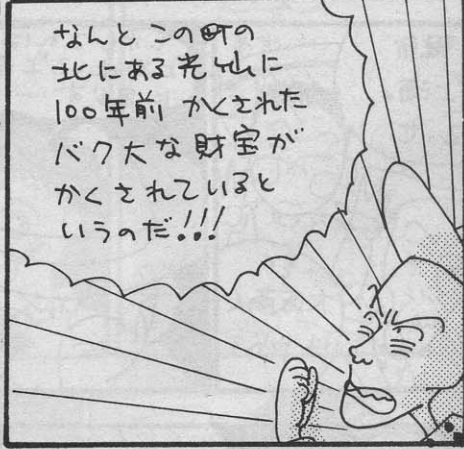 なんと この町の
北にある光山に
100年前 かくされた
バク大な財宝が
かくされていると
いうのだ!!!